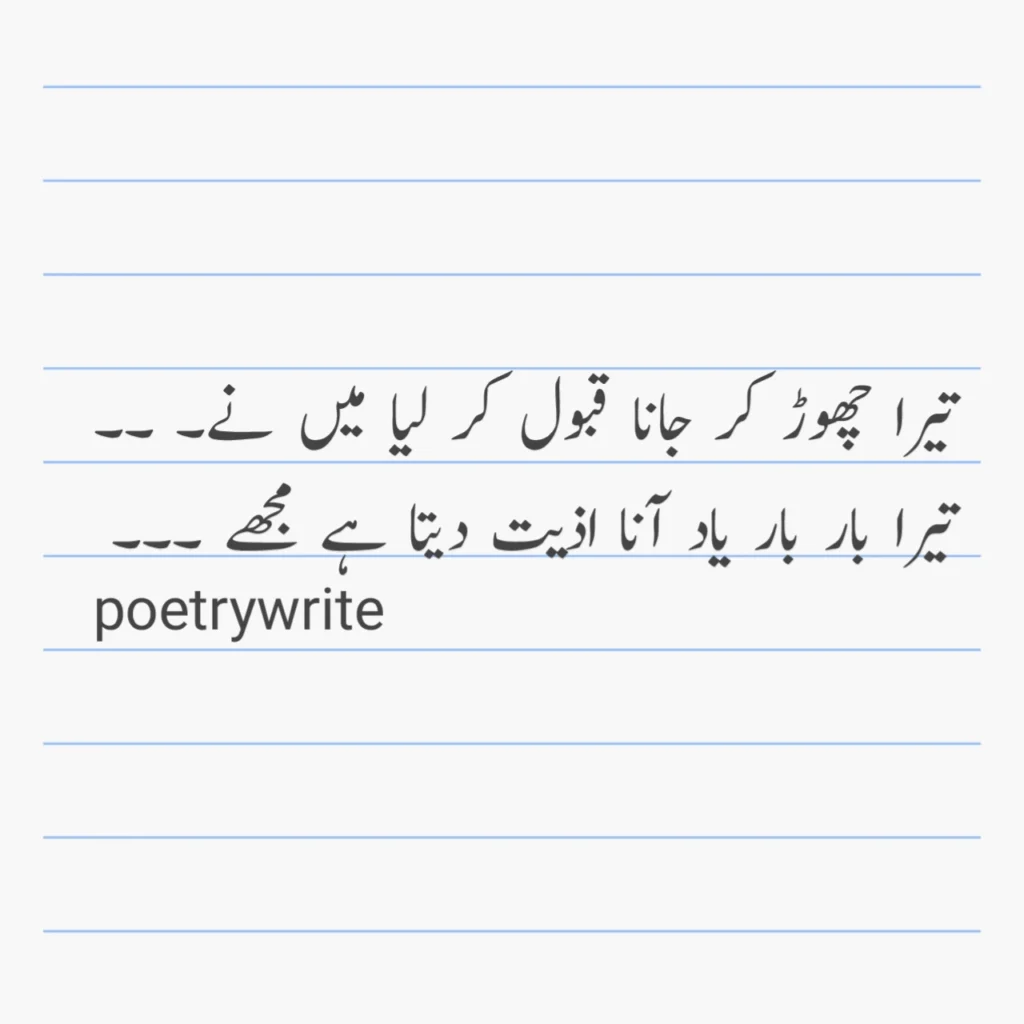 تیرا چھوڑ کر جانا قبول کر لیا میں نے۔ ۔۔
تیرا بار بار یاد آنا اذیت دیتا ہے مجھے ۔۔۔
poetrywrite